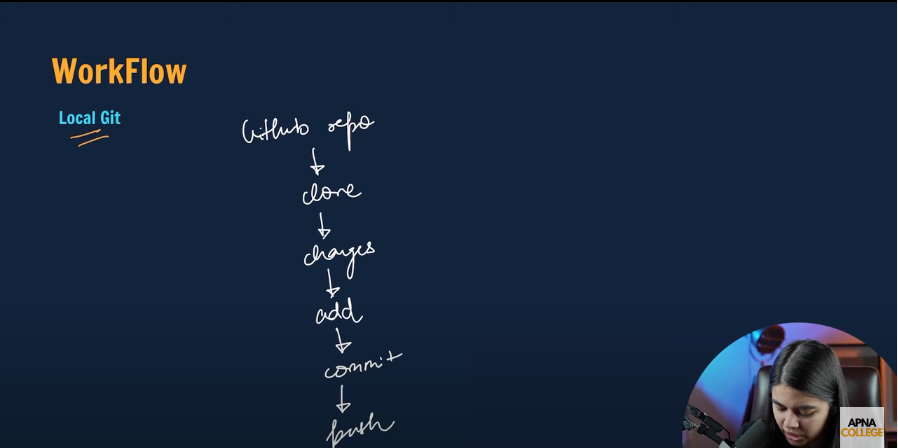 WorkFlow
Local Git
Github repo
clone
changes
add
commit
push
APNA
COLLEGE